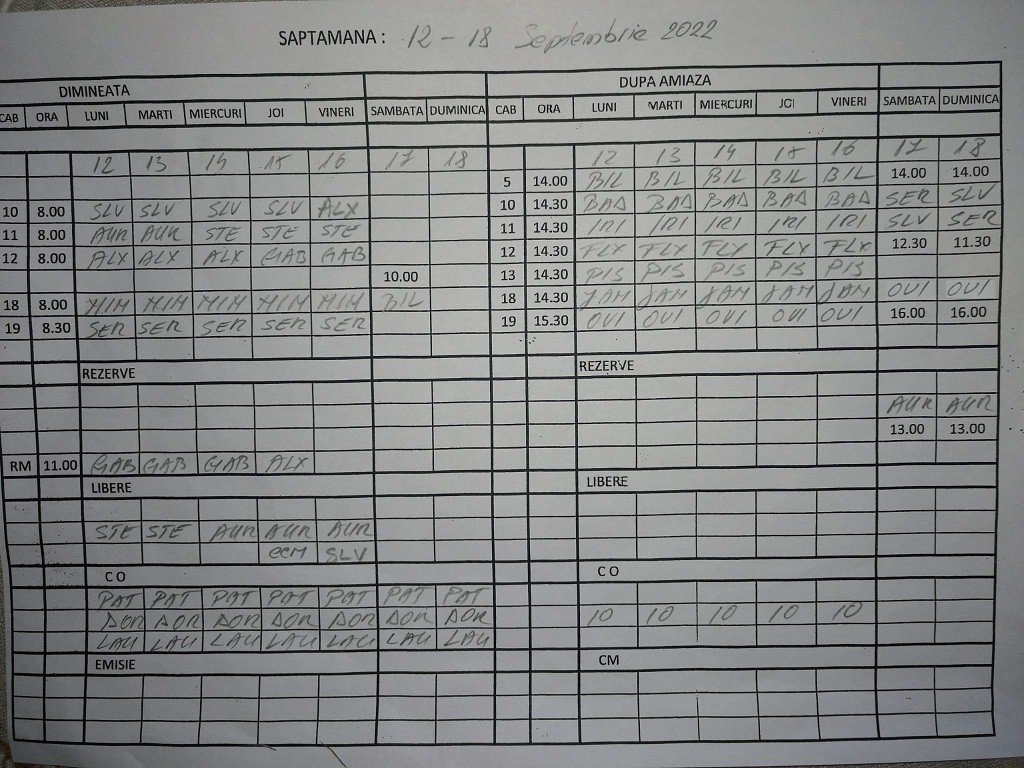 SAPTAMANA : 12 - 18 Septembrie 2022
DIMINEATA DUPA AMIAZA
CAB ORA LUNI MARTI MIERCURI JOI VINERI SAMBATA DUMINICA CAB ORA LUNI MARTI MIERCURI JOI VINERI SAMBATA DUMINICA
12 13 14 15 16 17 18 12 13 14 15 16 17 18
5 14.00 BIL BIL BIL BIL BIL 14.00 14.00
10 8.00 SLV SLV SLV SLV ALX 10 14.30 BAD BAD BAD BAD BAD SER SLV
11 8.00 AUR AUR STE STE STE 11 14.30 IRI IRI IRI IRI IRI SLV SER
12 8.00 ALX ALX ALX GAB GAB 12 14.30 FLX FLX FLX FLX FLX 12.30 11.30
10.00 13 14.30 PIS PIS PIS PIS PIS
18 8.00 MIM MIM MIM MIM MIM BIL 18 14.30 JAM JAM JAM JAM JAM OVI OVI
19 8.30 SER SER SER SER SER 19 15.30 OVI OVI OVI OVI OVI 16.00 16.00
REZERVE REZERVE
AUR AUR
13.00 13.00
RM 11.00 GAB GAB GAB ALX
LIBERE LIBERE
STE STE AUR AUR AUR
SLV
C O C O
PAT PAT PAT PAT PAT PAT PAT
DOR DOR DOR DOR DOR DOR DOR 10 10 10 10 10
LAU LAU LAU LAU LAU LAU LAU
EMISIE CM